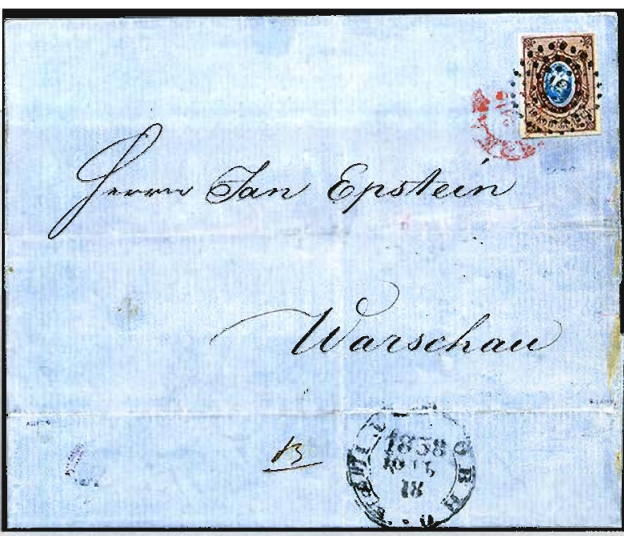 Herrn Jan Epstein
Warschau
1858
18